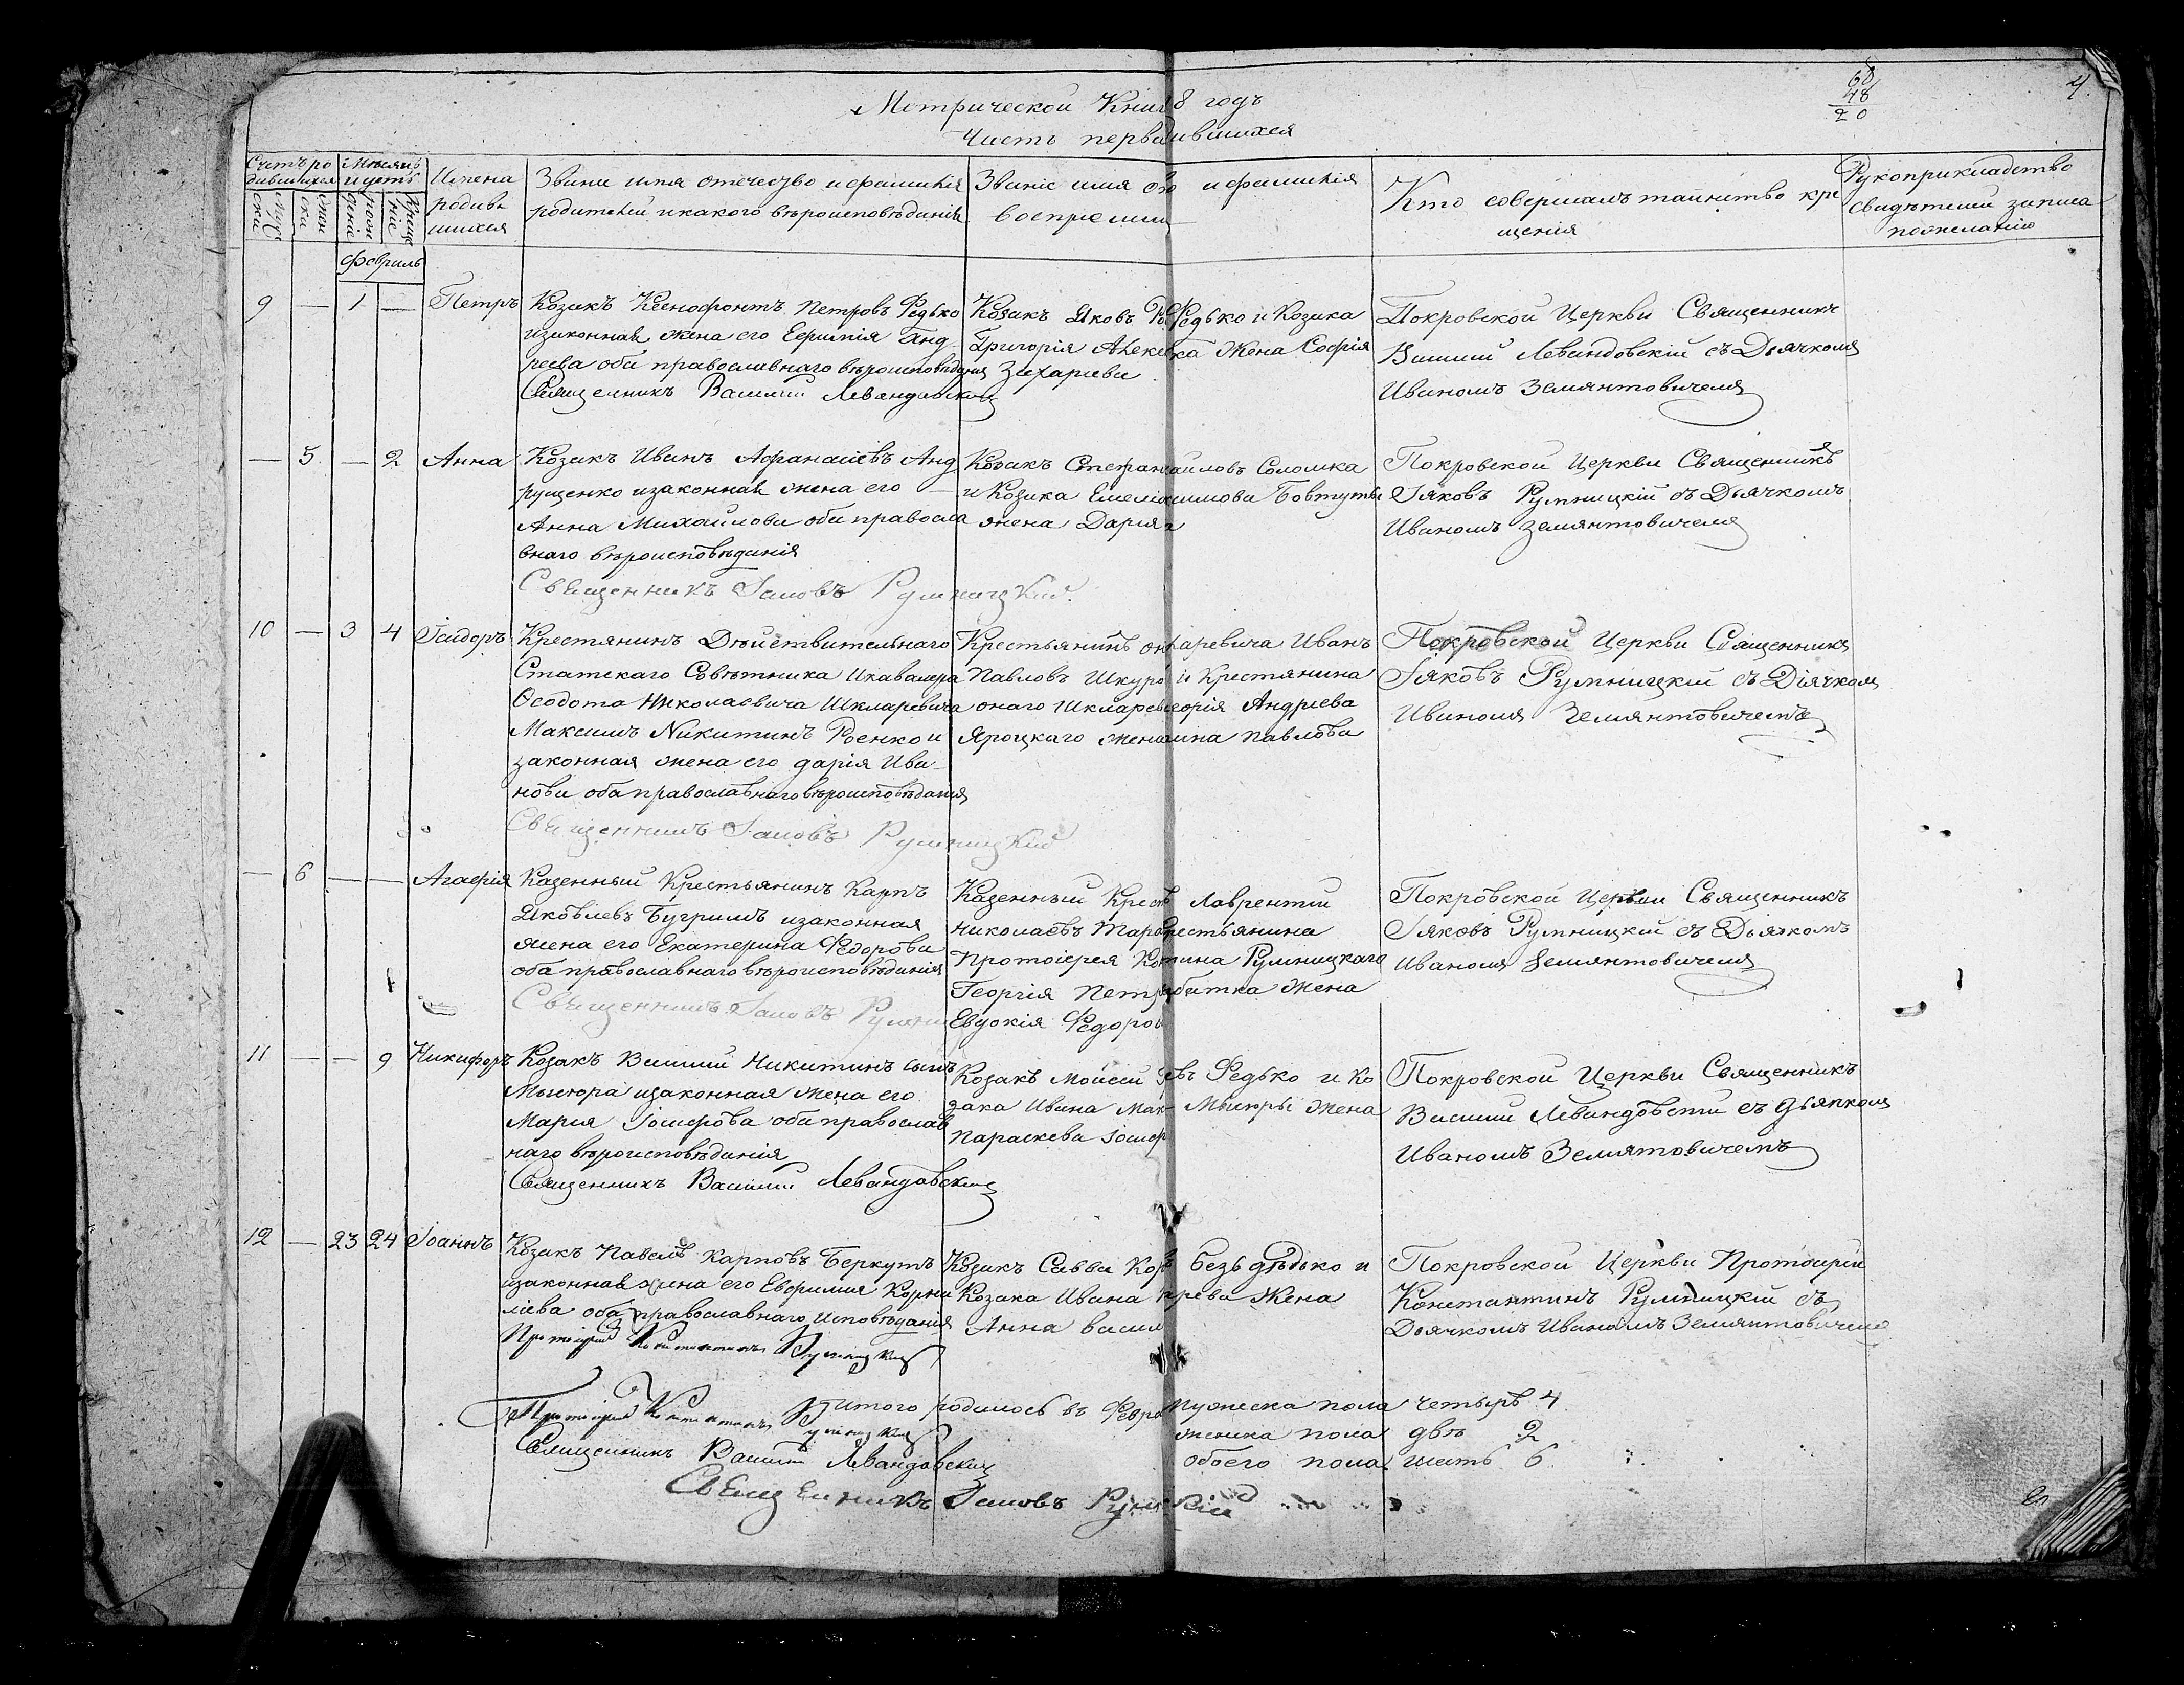 Метрической Книг 8 годъ
Часть перва ившихся
60
48
20
4
Счетъ ро
дившихся
Мѣсяцъ
Имена
родив
шихся
Звание имя отечество и фамилія
родителей и какого вѣроисповѣданія
Званіе имя от и фамилія
воспрѣмни
Кто совершалъ таинство кре
щенія
Рукоприкладство
свидѣтелей записа
по желанію
Февраль
9 — 1 — Петръ
Козакъ Ксенофонтъ Петровъ Редько
и законная жена его Евфимія Анд
реева оба православнаго вѣроисповѣданія
Священникъ Василий Левандовский
Козакъ Яковъ Редько и Козака
Григорія Алексѣ ка жена Софія
Захариева
Покровской Церкви Священникъ
Василий Левандовскій съ Дьячкомъ
Иваномъ Земянтовичемъ
— 5 — 2 Анна
Козакъ Иванъ Афанасіевъ Анд
рущенко и законная жена его —
Анна Михайлова оба правосла
внаго вѣроисповѣданія
Священникъ Іаковъ Румницкий
Козакъ Стефан айловъ Соломка
и Козака Емелія Бовтуты
жена Дария
Покровской Церкви Священникъ
Іяковъ Румницкій съ Дьячкомъ
Иваномъ Земянтовичемъ
10 — 3 4 Ісидоръ
Крестянинъ Дѣйствительнаго
Статскаго Совѣтника и кавалера
Ѳеодота Николаевича Шкларевича
Максимъ Никитинъ Роенко и
законная жена его Дарія Ива-
нова оба православнаго вѣроисповѣданія
Священникъ Іаковъ Румницкий
Крестьянинъ он ларевича Иванъ
Павловъ Шкуро и Крестянина
онаго Шкларев орія Андрѣева
Яроцкаго жена ина Павлова
Покровской Церкви Священникъ
Іяковъ Румницкій съ Діячкомъ
Иваномъ Земянтовичемъ
— 6 — — Агафія
Казенный Крестьянинъ Карпъ
Яковлевъ Бугримъ и законная
жена его Екатерина Федорова
оба православнаго вѣроисповѣданія
Священникъ Іаковъ Румни
Казенный Крест Лаврентий
Николаевъ Тара рестьянина
Протоіерея Ко тина Румницкаго
Георгія Петр битка жена
Евдокія Федоров
Покровской Церкви Священникъ
Іяковъ Румницкій съ Дьячкомъ
Иваномъ Земянтовичемъ
11 — — 9 Никифоръ
Козакъ Василий Никитинъ сынъ
Мысюра и законная жена его
Мария Іосифова оба православ
наго вѣроисповѣданія
Священникъ Василий Левандовский
Козакъ Мойсей евъ Федько и Ко
зака Ивана Мак Мысюры жена
Параскева Іосиф
Покровской Церкви Священникъ
Василий Левандовский съ Дьячкомъ
Иваномъ Земятовичемъ
12 — 23 24 Іоаннъ
Козакъ Павелъ Карповъ Беркутъ
и законная жена его Евфимия Корни
лієва оба православнаго исповѣданія
Протоіерей Константинъ Румницкий
Козакъ Савва Кор Безъ дѣдько и
Козака Ивана рева жена
Анна Васил
Покровской Церкви Протоиерей
Константинъ Румницкій съ
Дьячкомъ Иваномъ Земянтовичемъ
Итого родилось въ Февра мужеска пола четырѣ 4
женска пола двѣ 2
обоего пола шесть 6
Протоіерей Константинъ Румницкий
Священникъ Василий Левандовский
Священникъ Іаковъ Рум кій